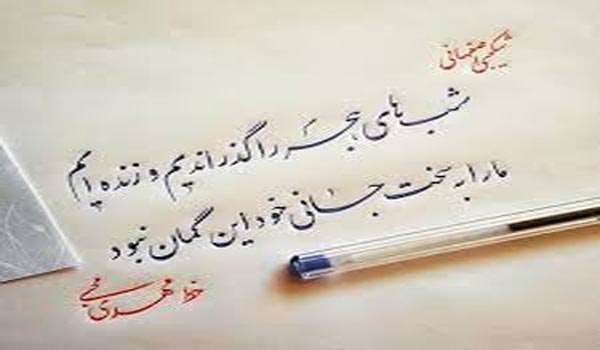 شکیبی اصفهانی
شب های هجر را گذراندیم و زنده ایم
ما را به سخت جانی خود این گمان نبود
خط محمدی